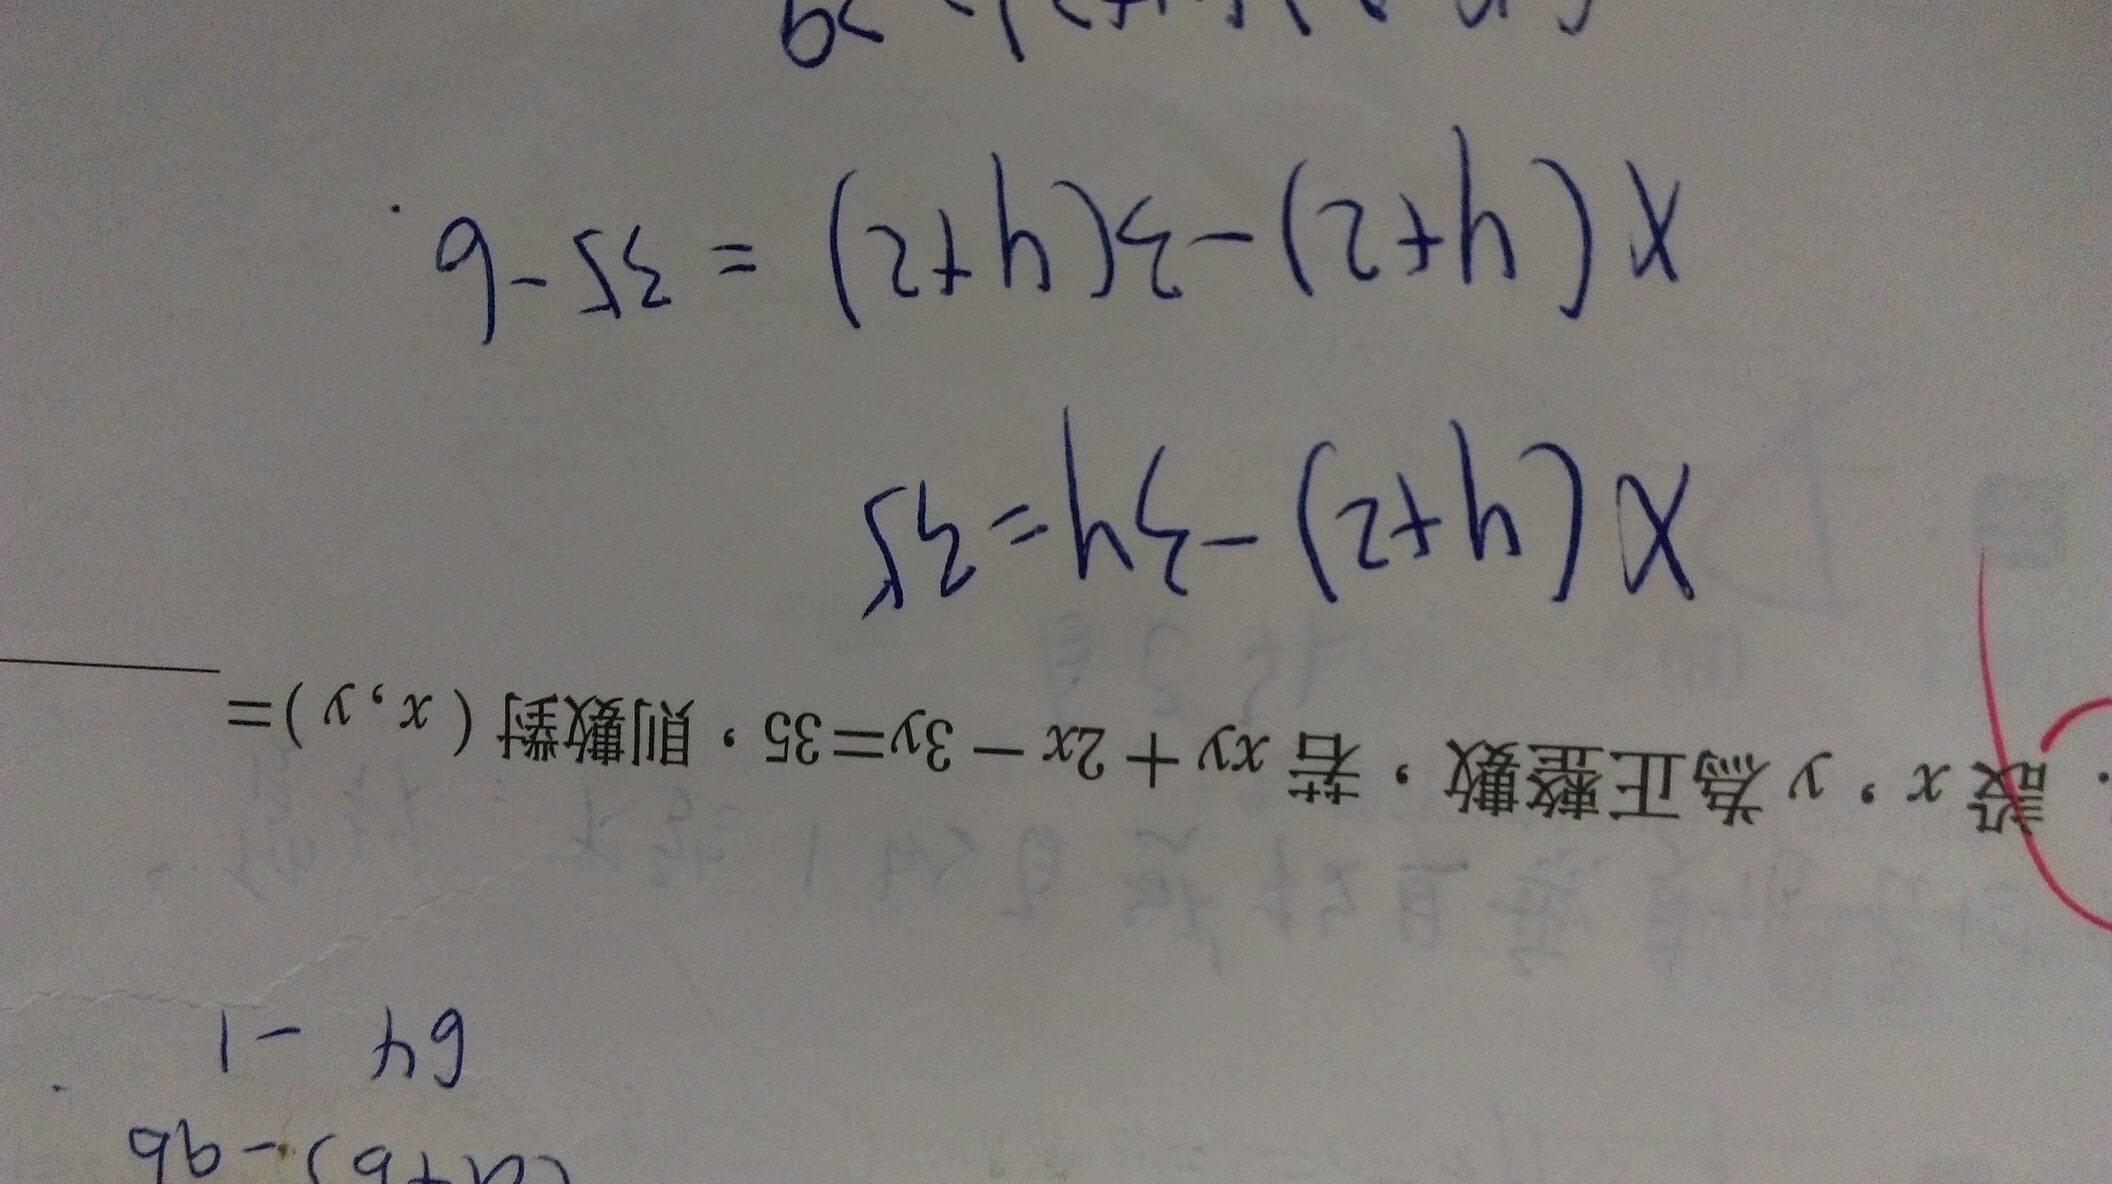 (a+b)-ab
64 -1
設 x,y 為正整數,若 xy+2x-3y=35,則數對(x,y)=
x(y+2)-3y=35
x(y+2)-3(y+2)=35-6